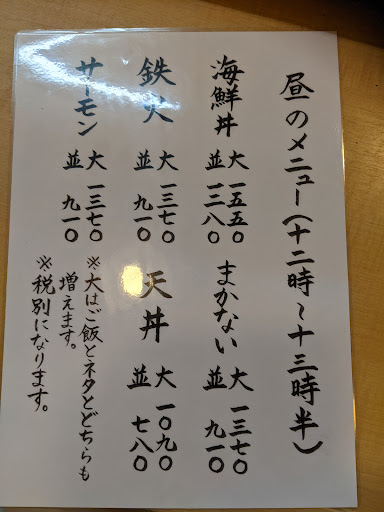 昼のメニュー(十二時〜十三時半)
海鮮丼
大 一五五〇
並 一二八〇
まかない
大 一三七〇
並 九一〇
鉄火
大 一三七〇
並 九一〇
天丼
大 一〇九〇
並 七八〇
サーモン
大 一三七〇
並 九一〇
※大はご飯とネタとどちらも
増えます。
※税別になります。